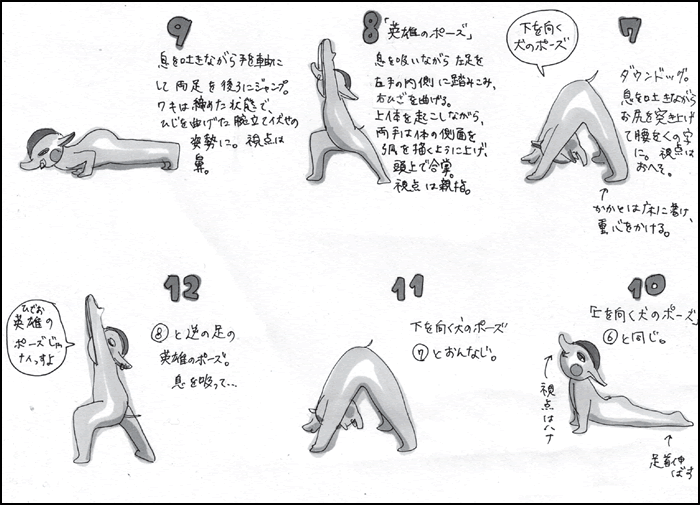 7
下を向く
犬のポーズ
ダウンドッグ。
息を吐きながら
お尻を突き上げ
て腰をくの字
に。視点は
おへそ。
↑
かかとは床に着け、
重心をかける。
8
「英雄のポーズ」
息を吸いながら左足を
左手の内側に踏みこみ、
右ひざを曲げる。
上体を起こしながら、
両手は体の側面を
弧を描くように上げ、
頭上で合掌。
視点は親指。
9
息を吐きながら手を軸に
して両足を後ろにジャンプ。
ワキは締めた状態で、
ひじを曲げた腕立て伏せの
姿勢に。視点は
鼻。
10
上を向く犬のポーズ
⑥と同じ。
視点はハナ
足首伸
ばす
11
下を向く犬のポーズ
⑦とおんなじ。
12
⑧と逆の足の
英雄のポーズ。
息を吸って…
ひでお
英雄の
ポーズじゃ
ナイっすよ